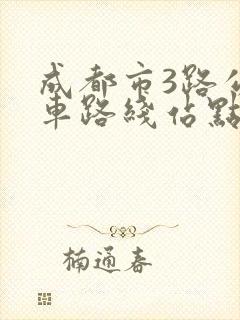 成都市3路公
車路綫佔點
楠通春